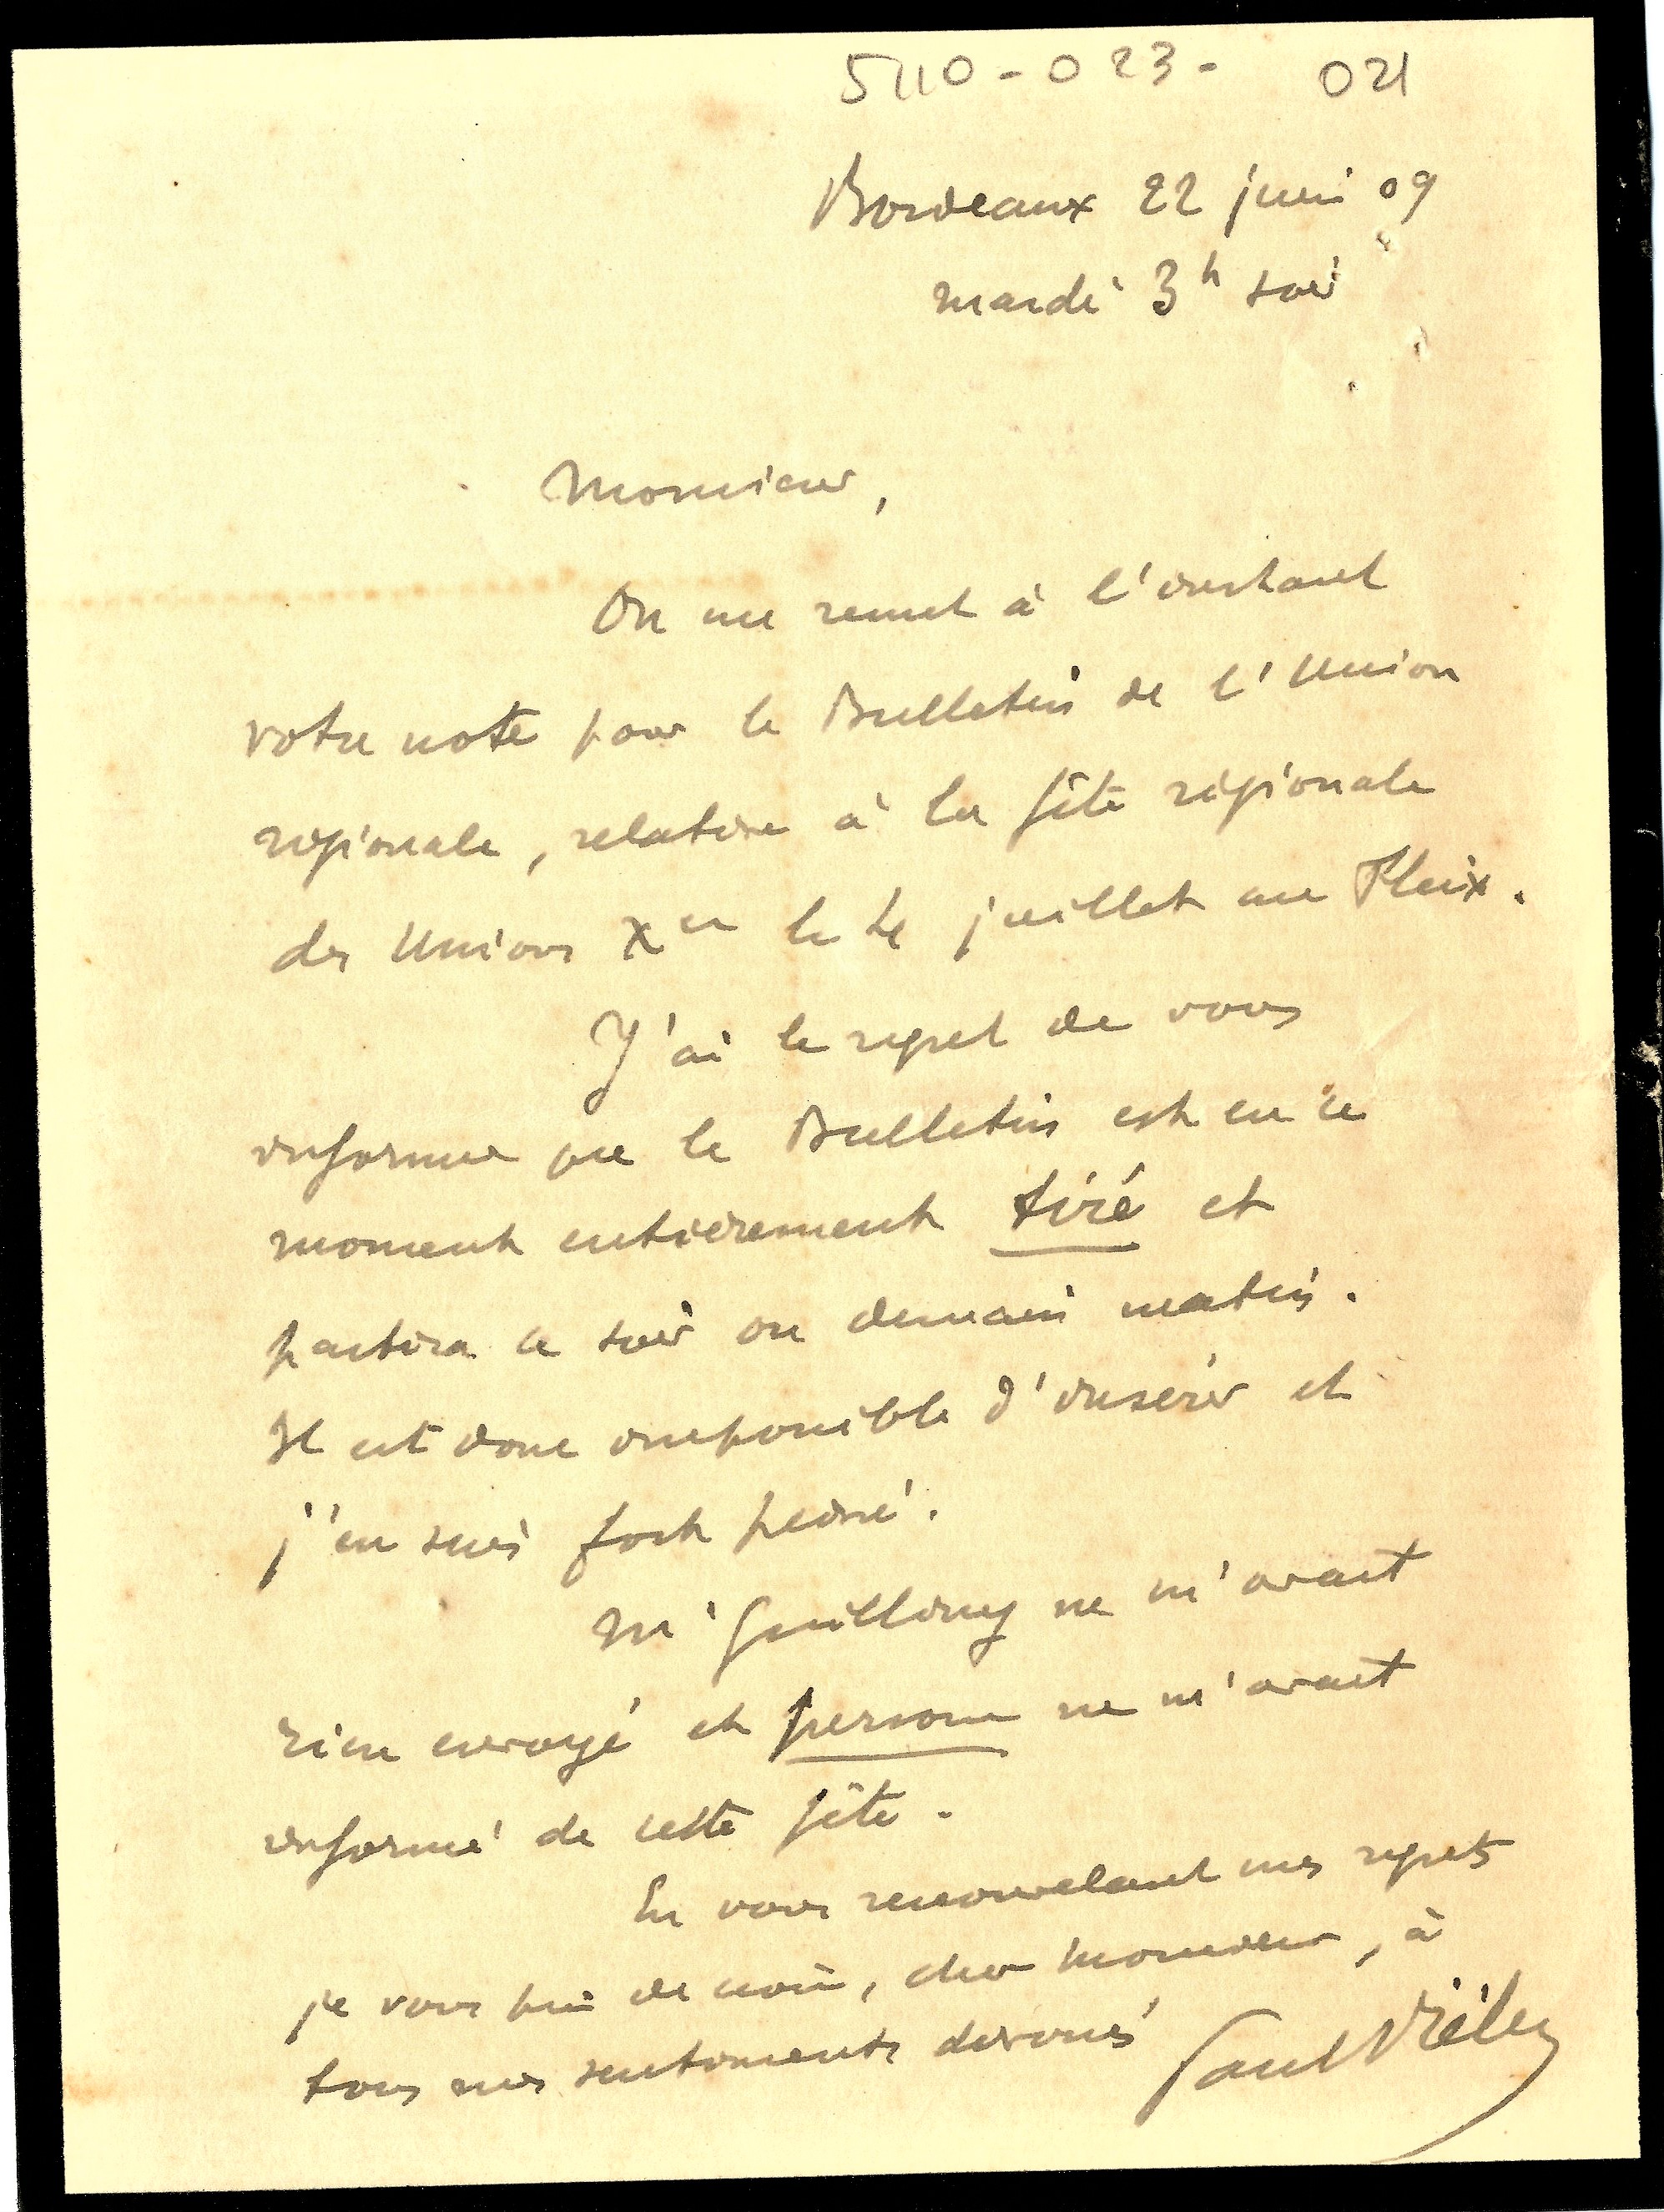 5110-023- 021
Bordeaux 22 juin 09
mardi 3h soir
Monsieur,
On me remet à l'instant
votre note pour le Bulletin de l'Union
régionale, relative à la fête régionale
des Unions Xnes le 4 juillet au Fleix.
J'ai le regret de vous
informer que le Bulletin est en ce
moment entièrement tiré et
partira ce soir ou demain matin.
Il est donc impossible d'insérer et
j'en suis fort peiné.
Mr ne m'avait
rien envoyé et personne ne m'avait
informé de cette fête.
En vous renouvelant mes regrets
je vous prie de croire, cher Monsieur, à
tous mes sentiments dévoués
Paul